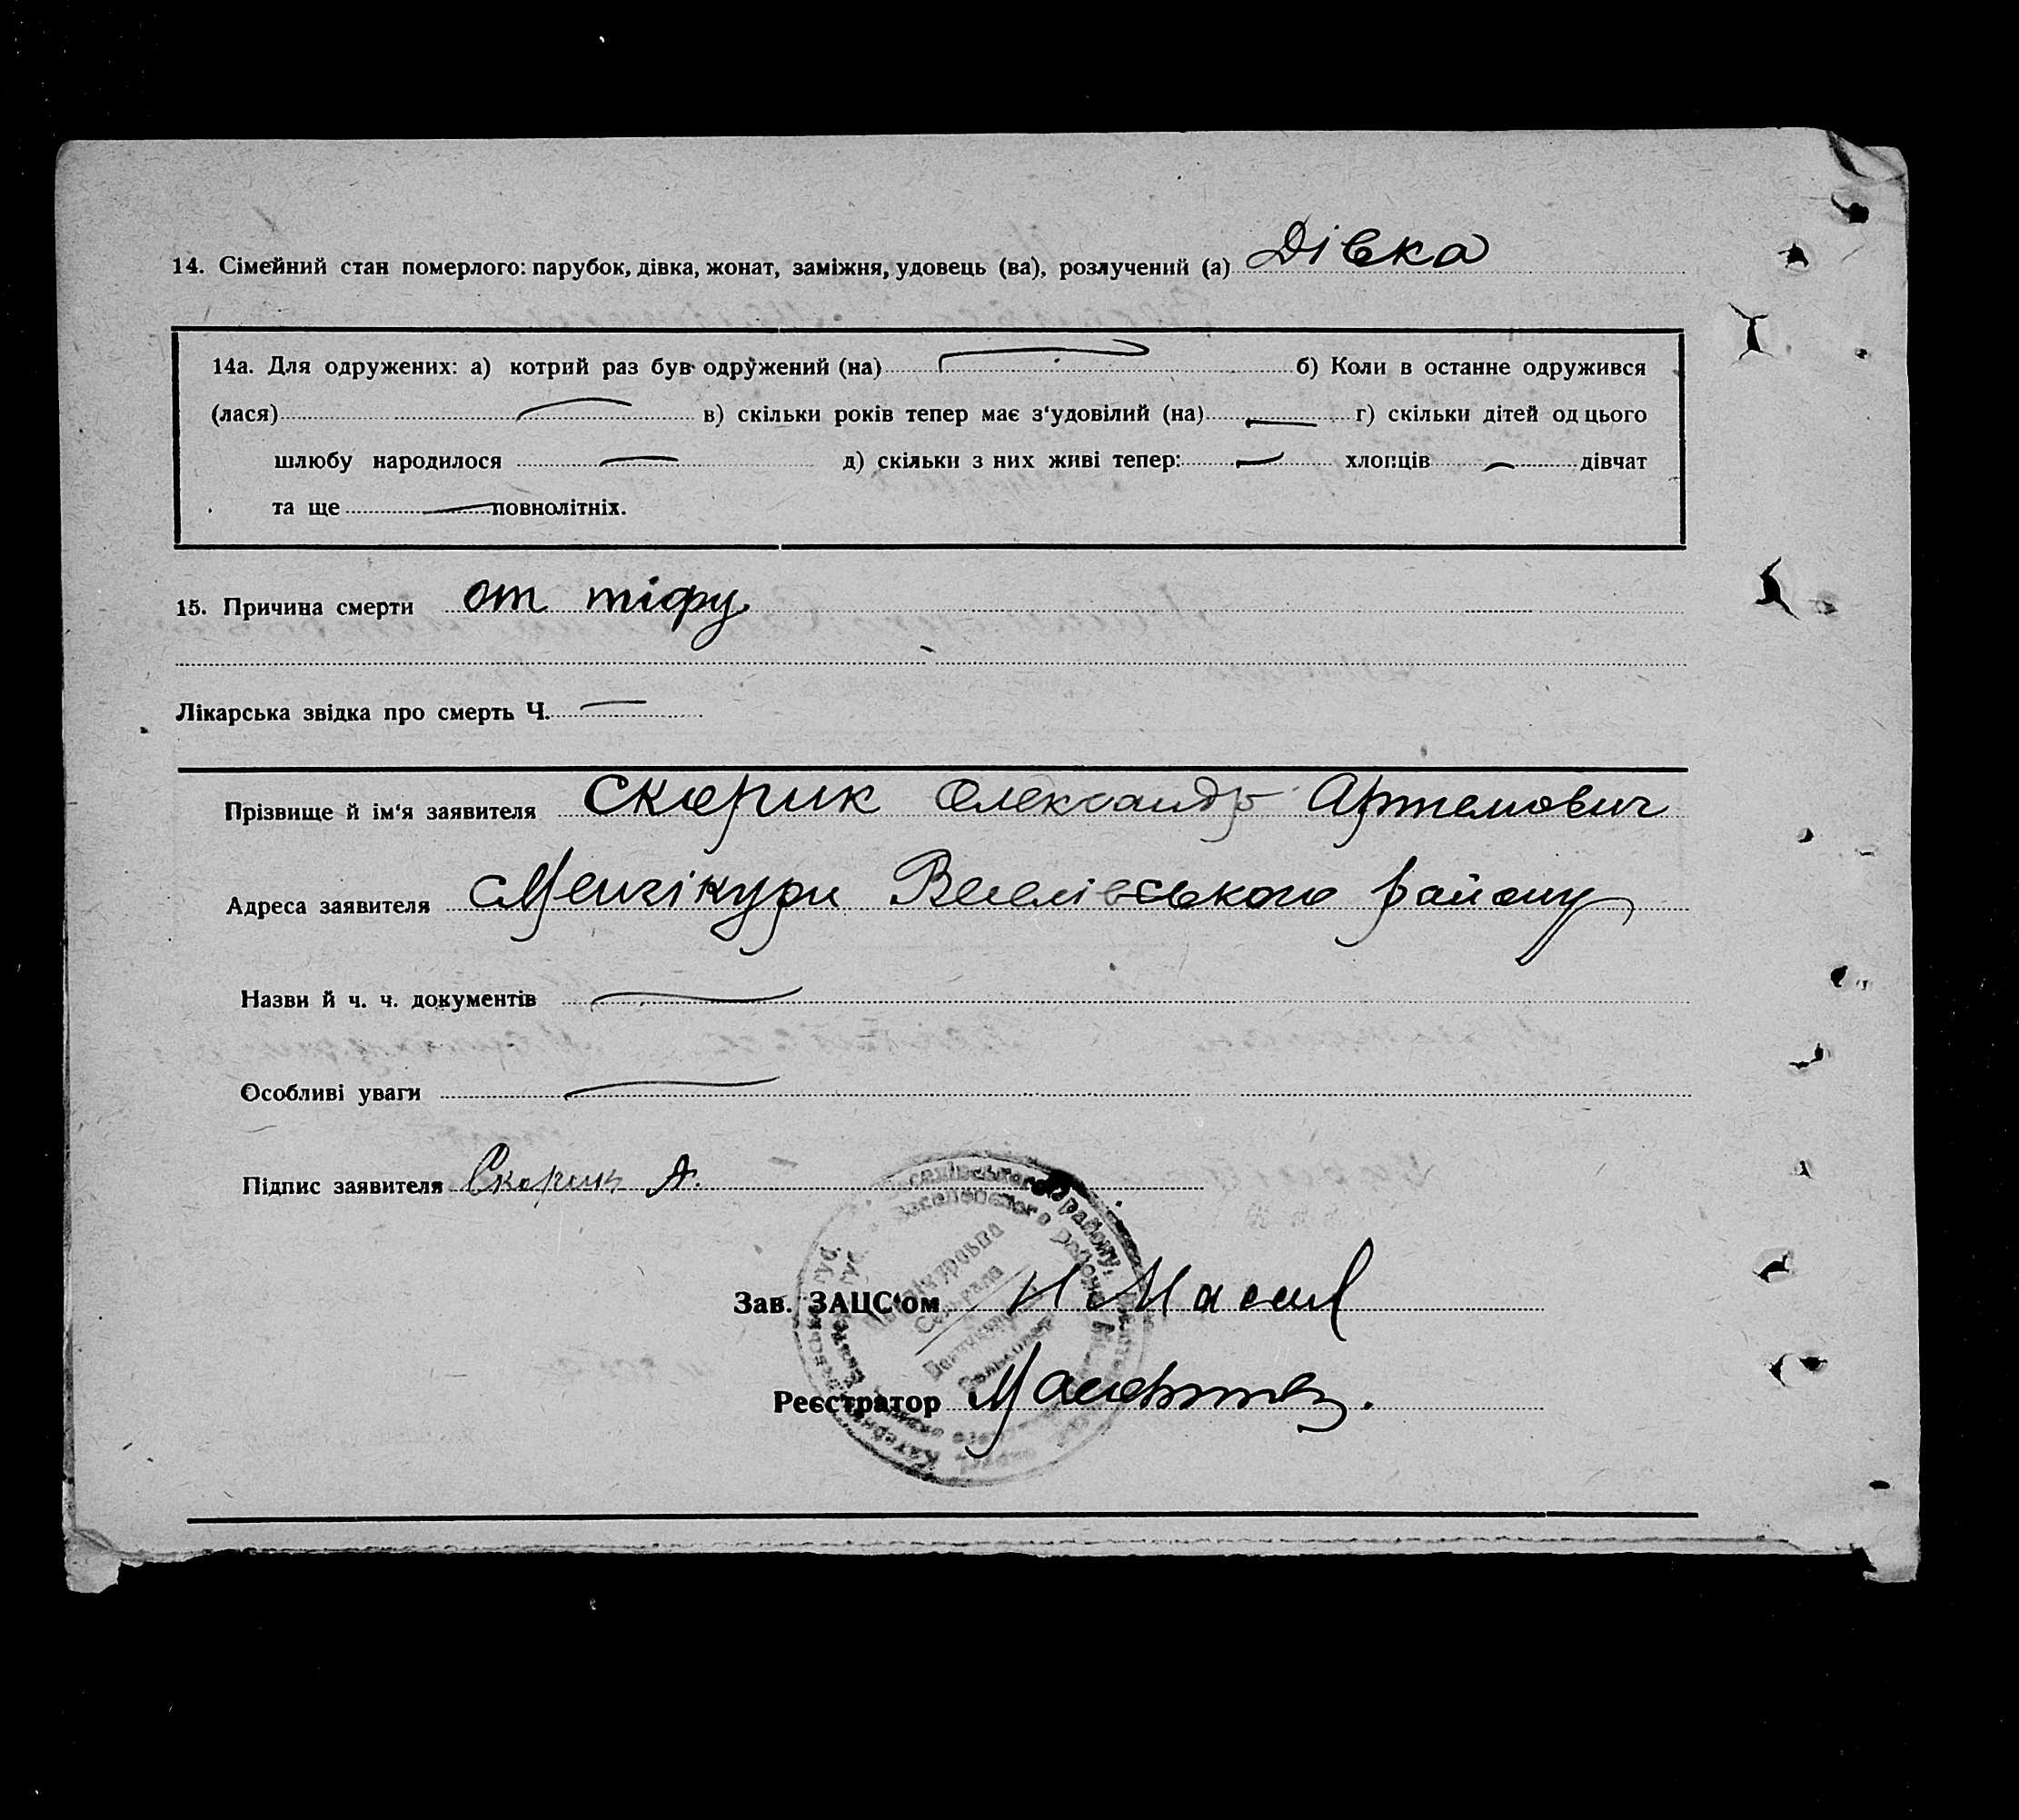 14. Сімейний стан померлого: парубок, дівка, жонат, заміжня, удовець (ва), розлучений (а) Дівка
14а. Для одружених: а) котрий раз був одружений (на) б) Коли в останне одружився
(лася) в) скільки років тепер має з‘удовілий (на) г) скільки дітей од цього
шлюбу народилося д) скільки з них живі тепер: хлопців дівчат
та ще повнолітніх.
15. Причина смерти от тіфу
Лікарська звідка про смерть Ч.
Прізвище й ім‘я заявителя Скорик Олександр Артемович
Адреса заявителя Менчікури Веселівського району
Назви й ч. ч. документів
Особливі уваги
Підпис заявителя Скорик А.
Зав. ЗАЦС‘ом
Реєстратор